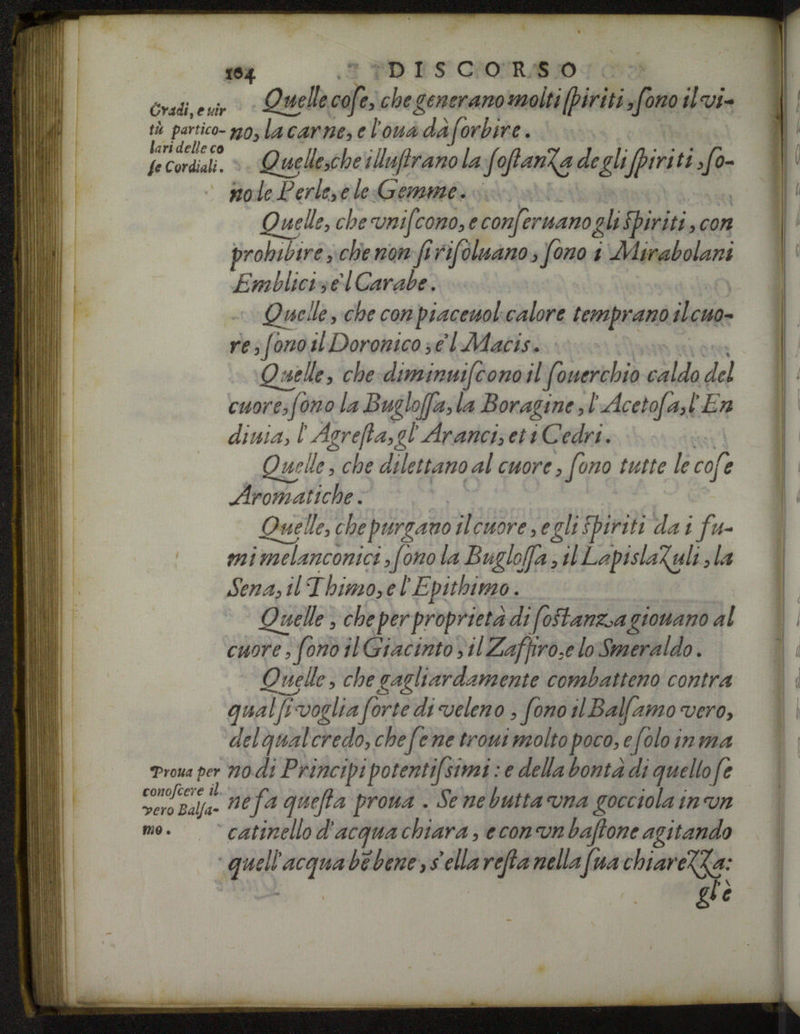 104 DISCORSO
Gradi, e uir
tù partico-
lari delle co
ſe Cordiali.
Quelle coſe, che generano molti ſpiriti, ſono il vi-
no, la carne, e l'oua da ſorbire.
Quelle, che illuſtrano la ſoſtanza de gli ſpiriti, ſo-
no le Perle, e le Gemme.
Quelle, che vniſcono, e conſeruano gli ſpiriti, con
prohibire, che non ſi riſoluano, ſono i Mirabolani
Emblici, e'l Carabe.
Quelle, che con piaceuol calore temprano il cuo-
re, ſono il Doronico, e'l Macis.
Quelle, che diminuiſcono il ſouerchio caldo del
cuore, ſono la Bugloſſa, la Boragine, l'Acetoſa, l'En
diuia, l'Agreſta, gl'Aranci, et i Cedri.
Quelle, che dilettano al cuore, ſono tutte le coſe
Aromatiche.
Quelle, che purgano il cuore, e gli ſpiriti da i fu-
mi melanconici, ſono la Bugloſſa, il Lapislazuli, la
Sena, il Thimo, e l'Epithimo.
Quelle, che per proprietà di ſoſtanza giouano al
cuore, ſono il Giacinto, il Zaffiro, e lo Smeraldo.
Quelle, che gagliardamente combatteno contra
qual ſi voglia ſorte di veleno, ſono il Balſamo vero,
del qual credo, che ſe ne troui molto poco, e ſolo in ma
no di Principi potentiſsimi: e della bontà di quello ſe
Proua per
conoſcere il
vero Balſa-
mo.
ne fa queſta proua. Se ne butta vna gocciola in vn
catinello d'acqua chiara, e con vn baſtone agitando
quell'acqua bē bene, s'ella reſta nella ſua chiarezza:
gl'è